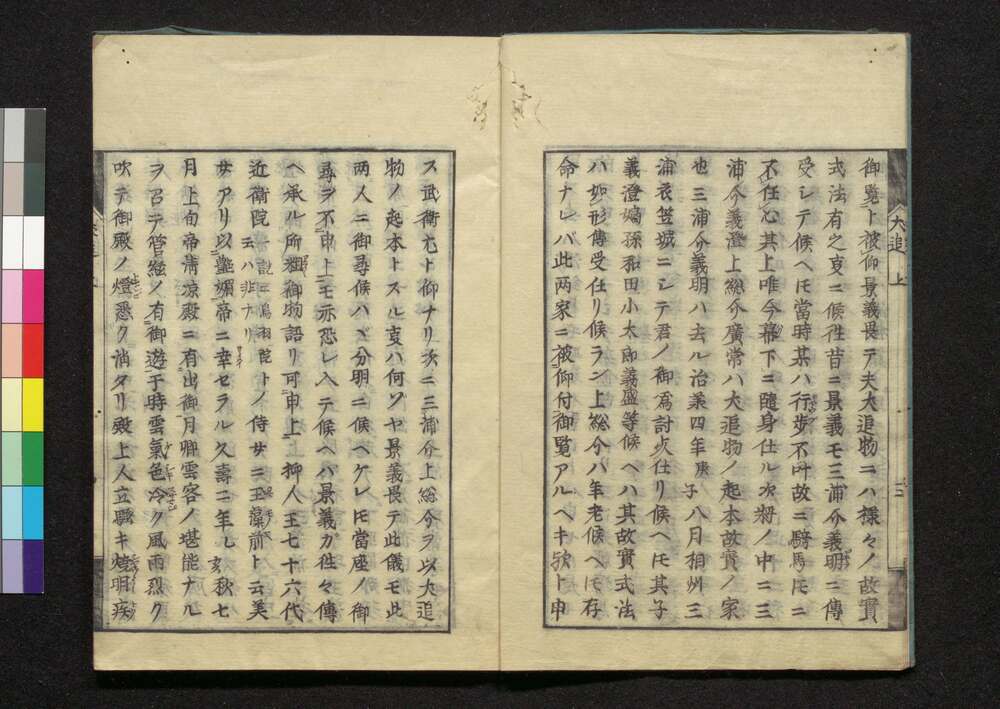 御覧ト被仰景義畏テ夫犬追物ニハ様々ノ故實
式法有之夏ニ候往昔ニ景義モ三浦介義明ニ傳
受シテ候ヘ𪜈當時某ハ行歩不叶故ニ騎馬𪜈ニ
不任心其上唯今幕下ニ隨身仕ル次狩ノ中ニ三
浦介義澄上總介廣常ハ犬追物ノ起本故實ノ家
也三浦介義明ハ去ル治承四年庚子八月相州三
浦衣笠城ニシテ君ノ御爲討死仕リ候ヘ𪜈其子
義澄嫡孫和田小太郎義盛等候ヘハ其故實式法
ハ如形傳受仕リ候ラン上総介ハ年老候ヘ𪜈存
命ナレバ此两家ニ被仰付御覧アルヘキ歟ト申
ス武衛尤ト仰ナリ次ニ三浦介上総介ヲ以犬追
物ノ起本トスル夏ハ何ゾヤ景義畏テ此儀モ此
两人ニ御尋候ハヾ分明ニ候ヘケレ𪜈當座ノ御
尋ヲ不申上モ亦恐レ入テ候ヘバ景義カ徃々傳
ヘ承ル所粗御物語リ可申上抑人王七十六代
近衛院一説ニ鳥羽院トノ云ハ非ナリ侍女ニ玉藻前ト云美
女アリ以艶媚帝ニ幸セラル久壽二年乙亥秋七
月上旬帝清凉殿ニ有出御月卿雲客ノ堪能ナル
ヲ召テ管絃ノ有御遊于時雲氣色冷ク風雨烈ク
吹テ御殿ノ燈悉ク消タリ殿上人立騒キ燈明疾
犬追 上